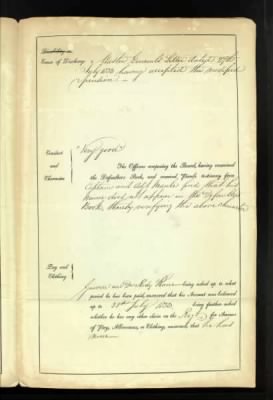 Disability or
Cause of Discharge
Master General's Letter dated 27th
July 1830 having accepted the modified
Pension
Conduct and Character
"Very good"
The Officers composing the Board, having examined
the Defaulters' Book, and received Parole testimony from
Captain and Adjt find that his
Name does not appear in the Defaulters
Book, thereby verifying the above character
Pay and Clothing
being asked up to what
period he has been paid, answered that his Account was balanced
up to July 1830 being further asked
whether he has any other claim on the Regt for Arrears
of Pay, Allowances, or Clothing, answered, that he had
none